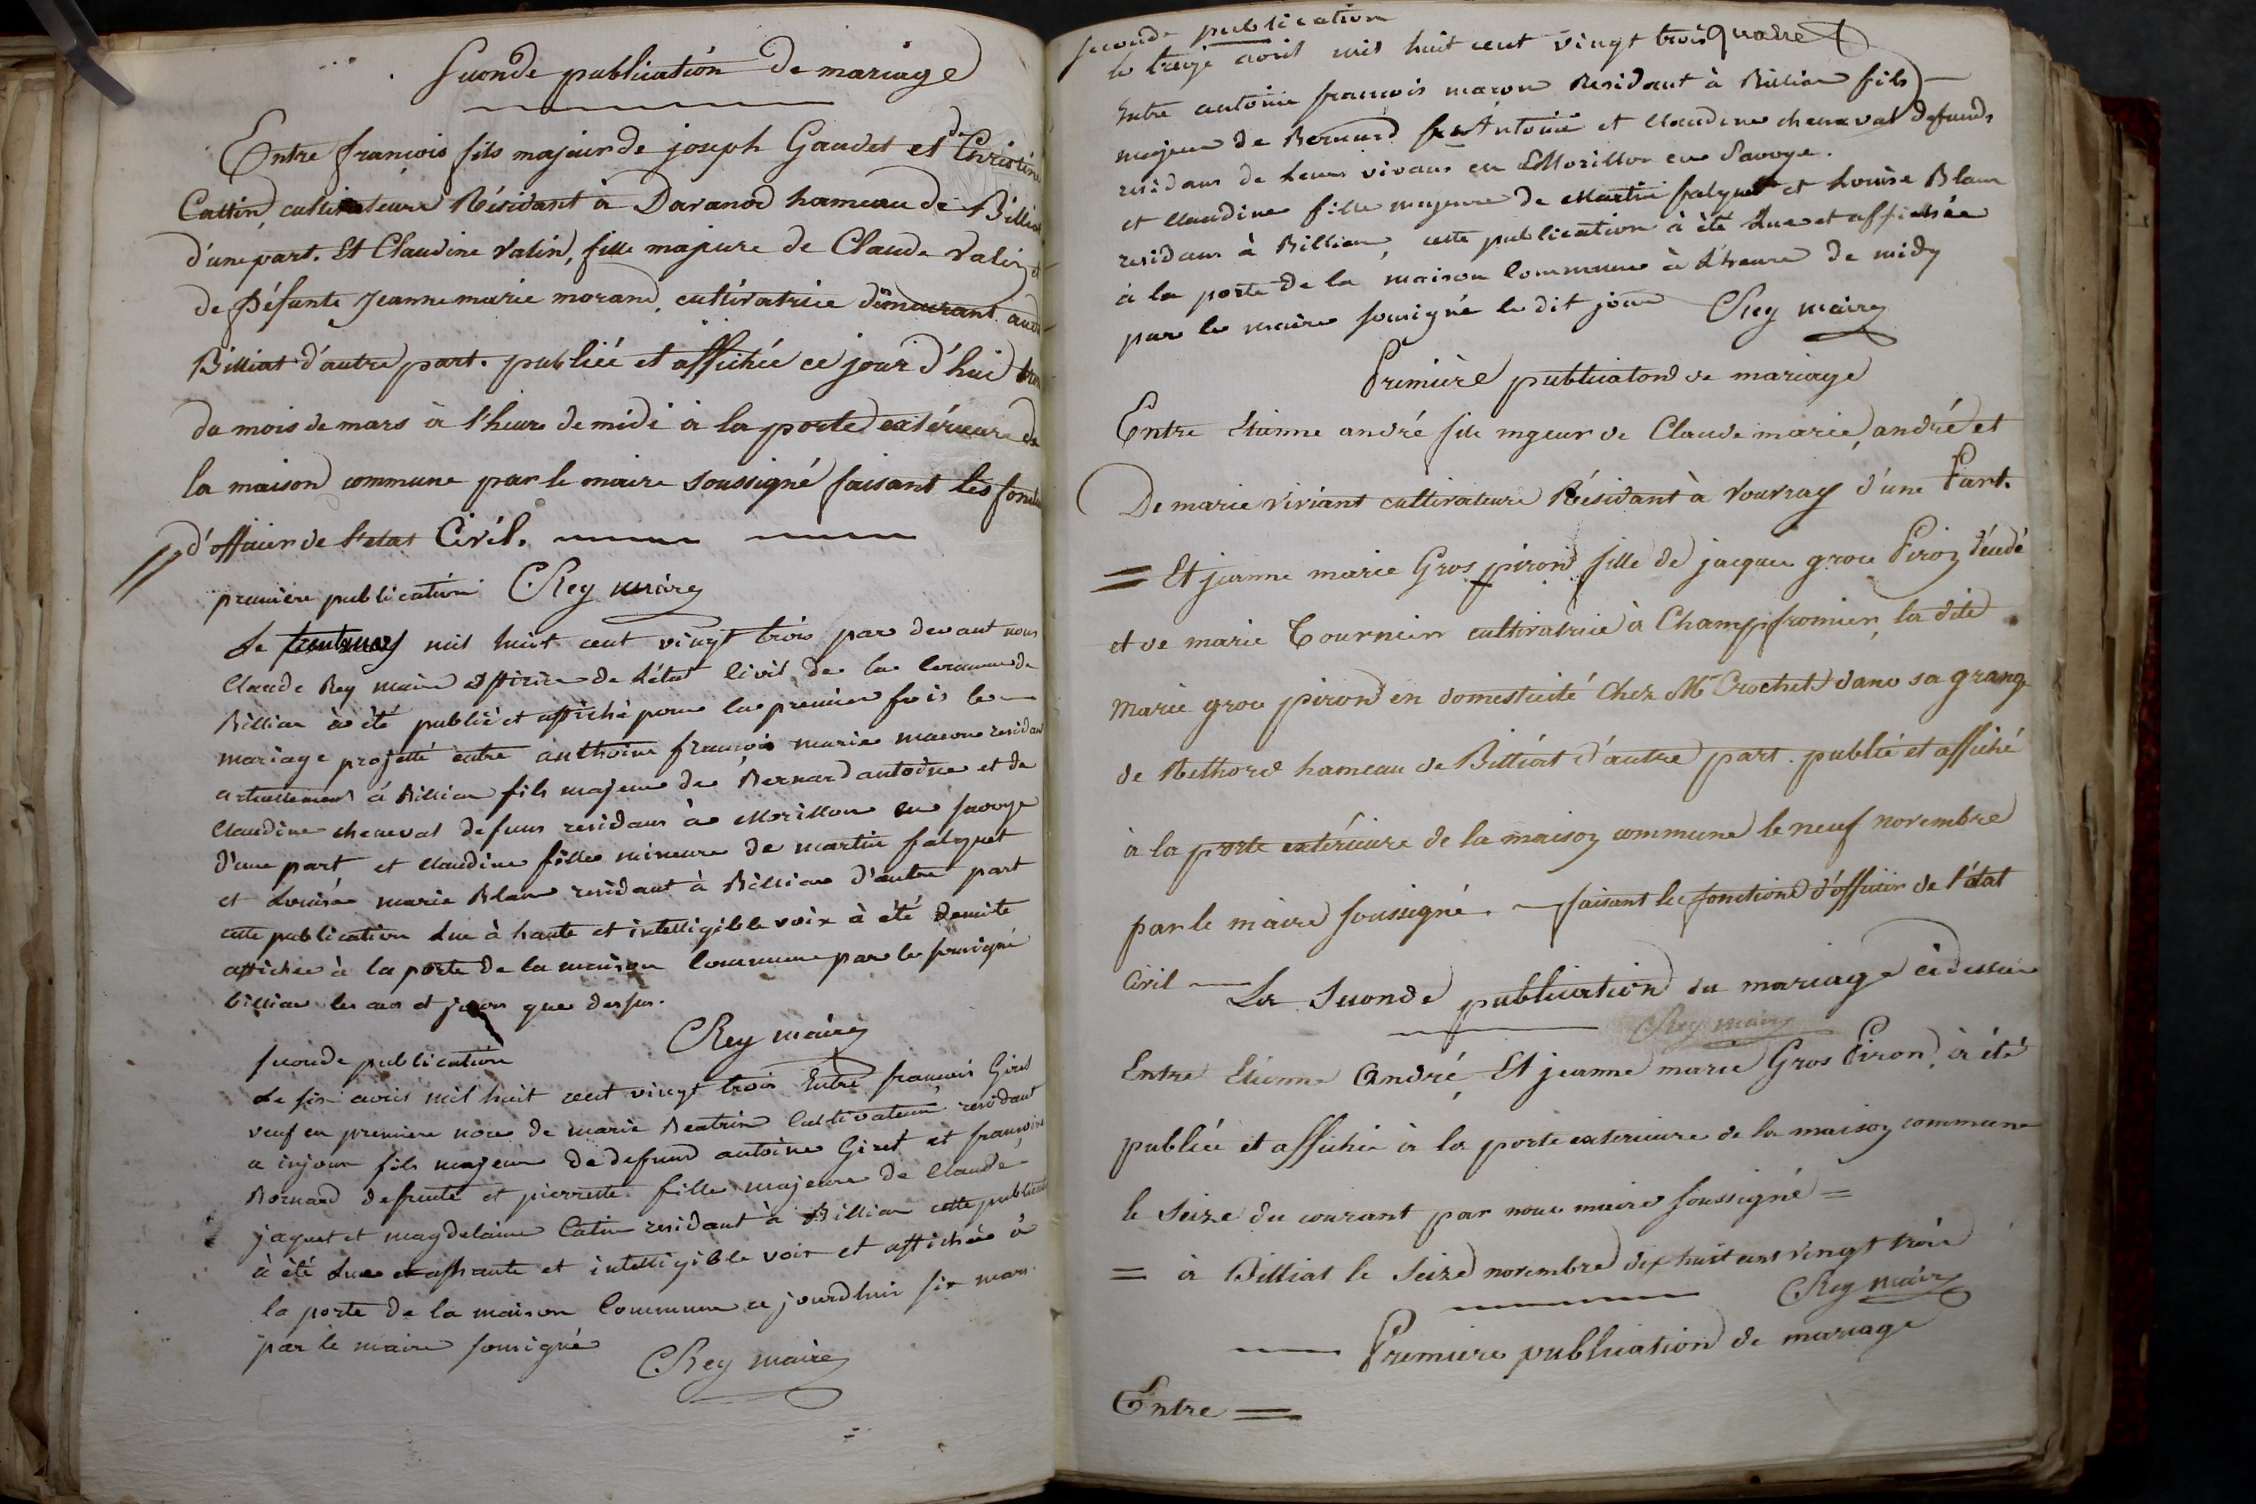 Seconde publication de mariage
Entre françois fils majeur de joseph Gaudet et de Christine
Cattin, cultivateur Résidant à Davanod hameau de Billiat
d'une part. Et Claudine Valin, fille majure de Claude Valin et
de Défunte Jeanne marie morand, cultivatrice demeurant audit
Billiat d'autre part. publiée et affichée ce jour d'hui
du mois de mars à l'heure de midi à la porte extérieure de
la maison commune par le maire soussigné faisant les fonctions
d'officier de l'etat Civil.
premiere publication Rey maire
Le mil huit cent vingt trois par devant nous
Claude Rey maire officier de l'état Civil de la Commune de
Billiat à été publié et affiché pour la premier fois le
mariage projetté entre anthoine françois marie maron residant
actuellement à Billiat fils majeur de Bernard antoine et de
Claudine cheneval defuns residans à Morillon en savoye
d'une part, et claudine fille mineure de martin falquet
et Louise marie Blan residant à Billiat d'autre part
cette publication lue à haute et intelligible voix à été
affichée à la porte de la maison Commune par le sousigné
billiat les an et jour que dessus.
Rey maire
seconde publication
Le six avril mil huit cent vingt trois Entre francois Giret
veuf en premiere noce de marie Beatrix Cultivateur residant
a injoux fils majeur de defund antoine Giret et françoise
Bornard defunte et pierrette fille majeure de Claude
jaquet et magdelaine Catin residant à Billiat cette publication
à été lue et affhaute et intelligible voix et affichée à
la porte de la maison Commune ce jourdhui six mars
par le maire sousigné
Rey maire
seconde publication
le treize avril mil huit cent vingt trois
Entre antoine francois maron Residant à Billiat fils
majeur de Bernard Antoine et claudine cheneval defunds
residans de leurs vivans en Morillon en Savoye.
et claudine fille majeure de Martin falquet et Louise Blan
residans à Billiat, cette publication à été lue et affichée
à la porte de la maison Commune à l'heure de midy
par le maire sousigné le dit jour Rey maire
Première publicaton de mariage
Entre etienne andré fils mgeur de Claude marie andré et
De marie Viviant cultivateur Résidant à Vouvray d'une Part.
= Et jeanne marie Gros piron fille de jacques gros Piron
et de marie Tournier cultivatrice à Champfromier, la dite
Marie gros piron en domesticité chez Mr Crochet dans sa grange
de Methord hameau de Billiat d'autre part. publié et affiché
à la porte extérieure de la maison commune le neuf novembre
par le maire soussigné. faisant les fonctions d'officier de l'état
Civil
La seconde publication du mariage ci dessus
Rey maire
Entre Etienne André, Et jeanne marie Gros Piron, à été
publiée et affichée à la porte exterieure de la maison commune
le seize du courant par nous maire soussigné =
= à Billiat le seize novembre dix huit cent vingt trois
Rey maire
Premiere publication de mariage
Entre =